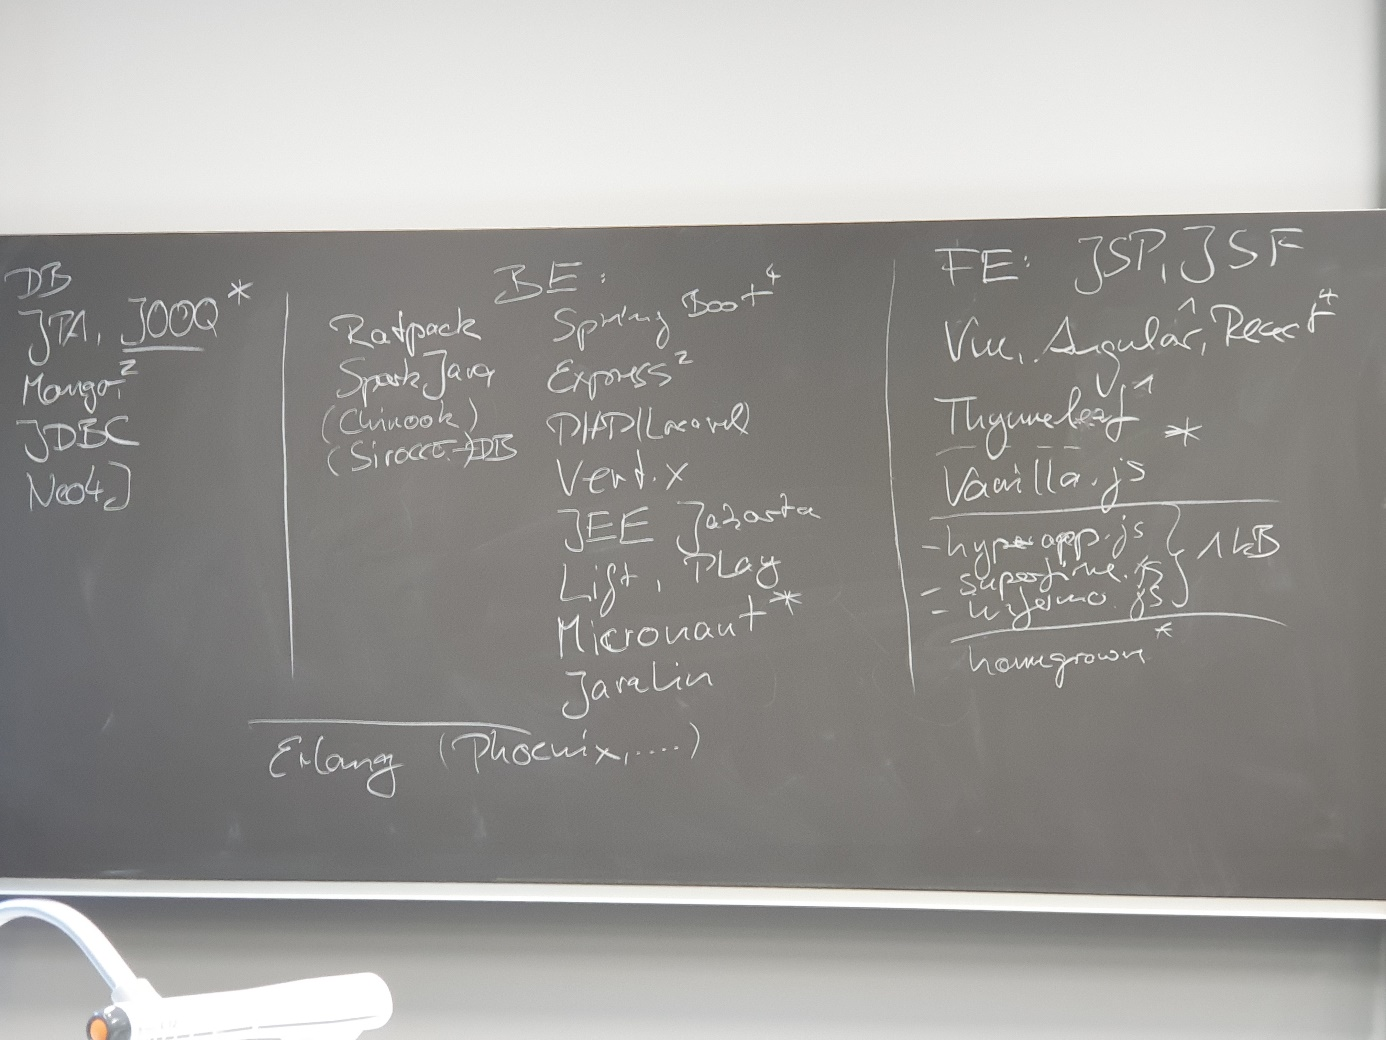 DB
JPA, JOOQ*
Mongo,²
JDBC
Neo4J
BE:
Ratpack
Spark Java
(Chinook)
(Sirocco→DB
Spring Boot⁴
Express²
PHP/Laravel
Vert.x
JEE Jakarta
Lift, PLay
Micronaut*
JavaLin
Erlang (Phoenix,....)
FE: JSP, JSF
Vue, Angular¹, React⁴
Thymeleaf¹
Vanilla.js *
- hyperapp.js } 1kB
- superfine.js
- inferno.js
homegrown*